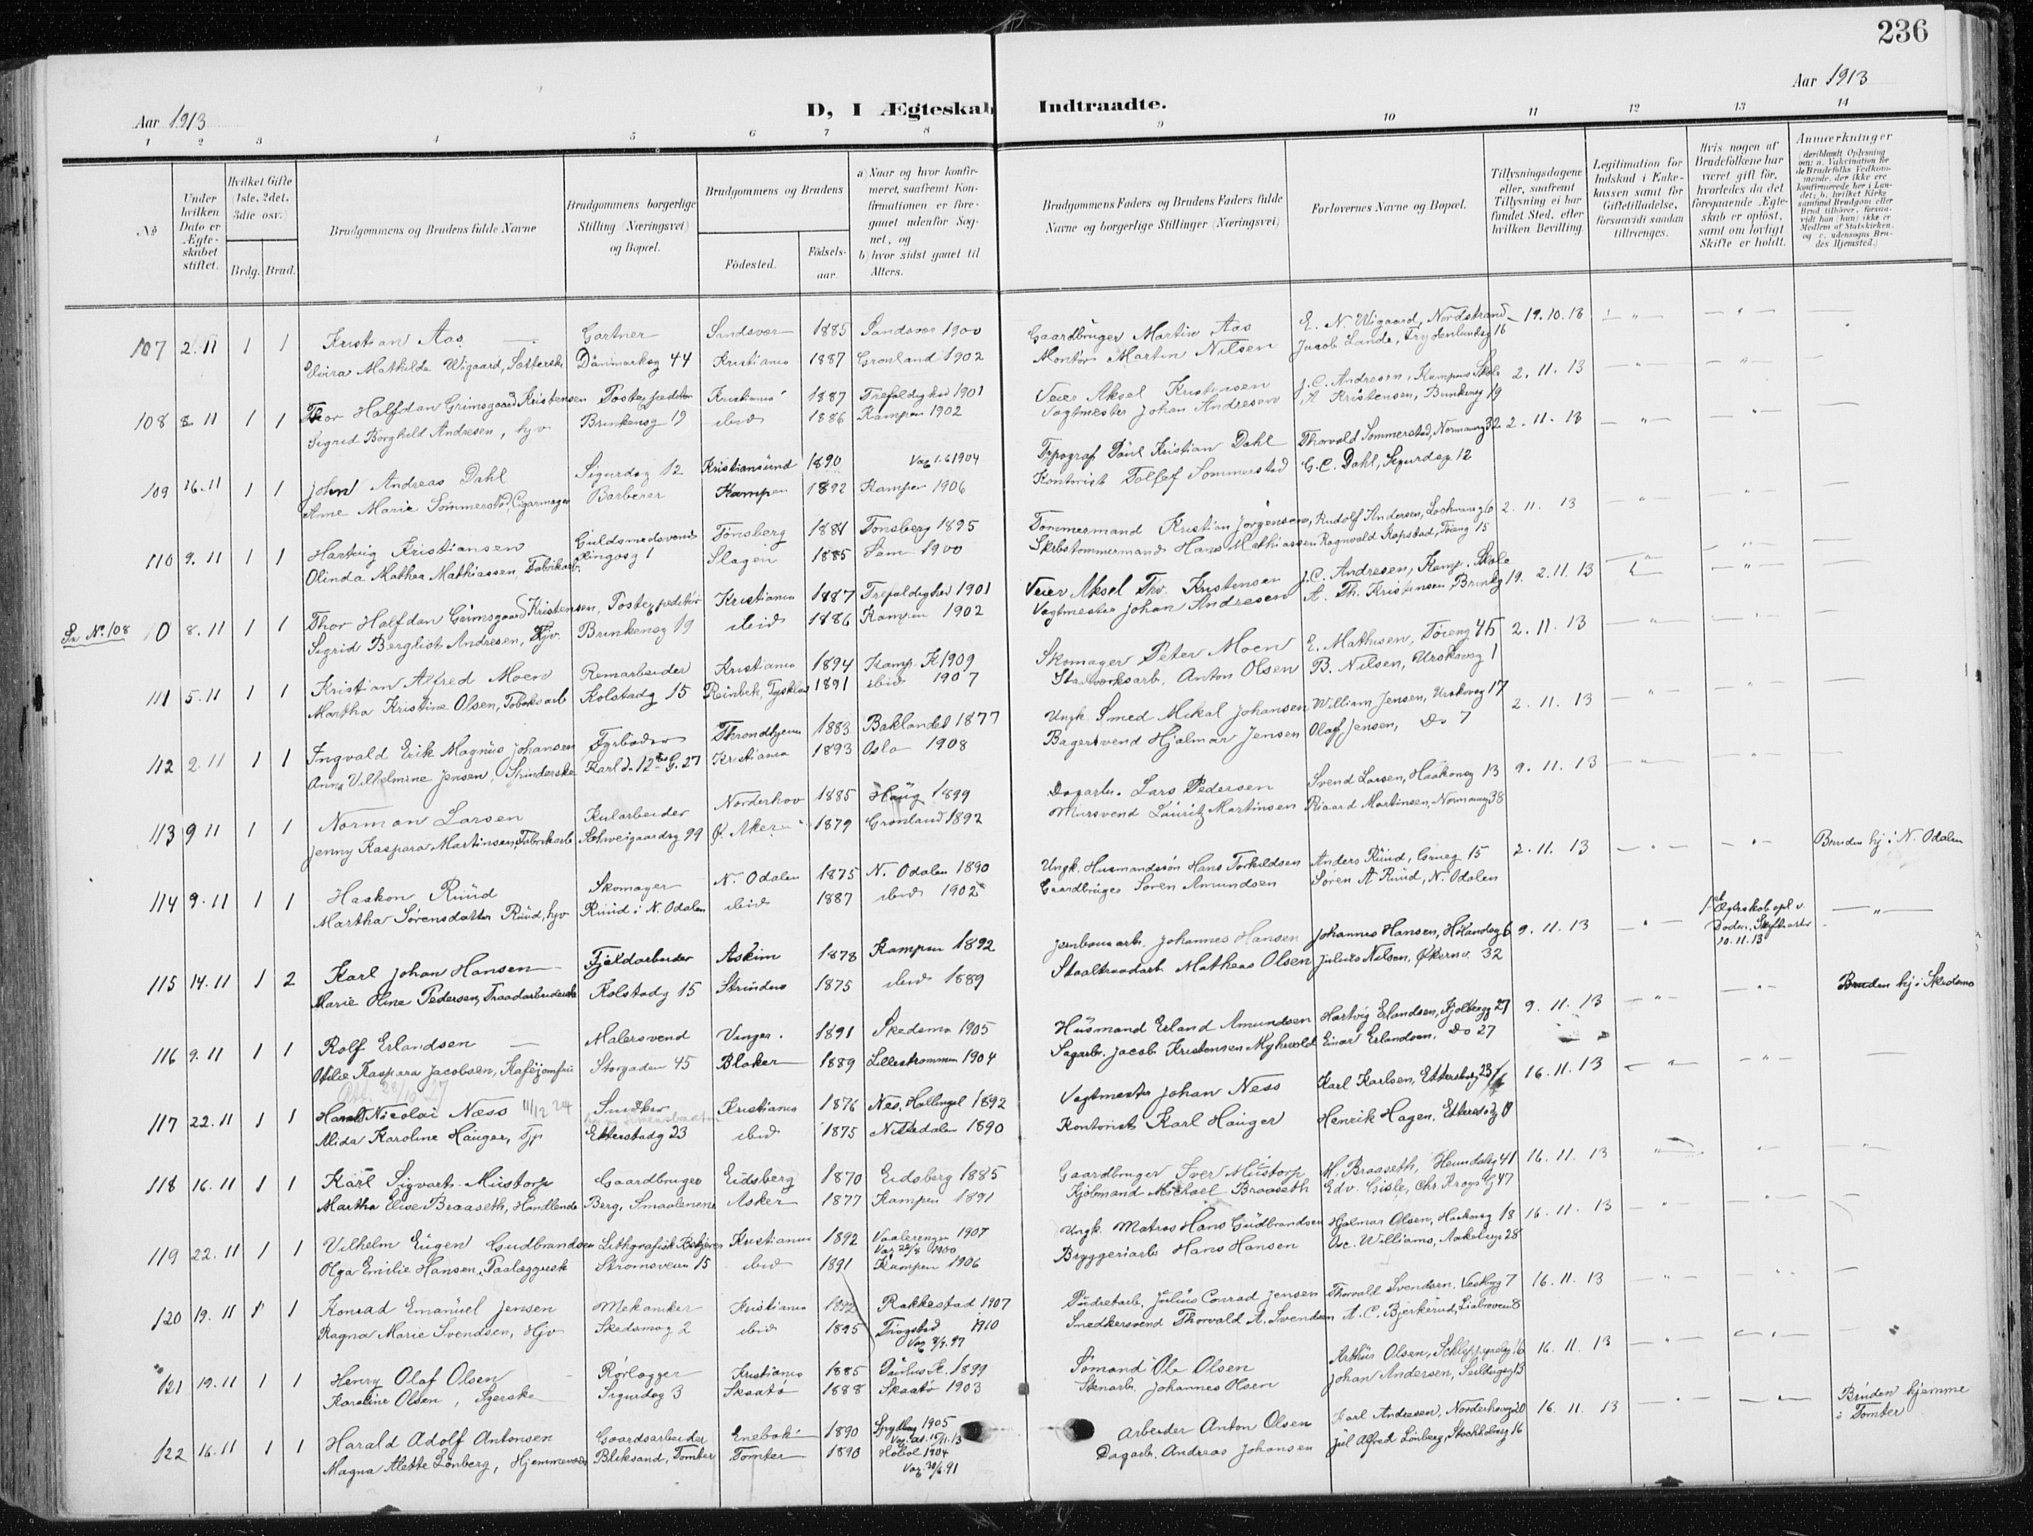 236
Aar 1913
Aar 1913
D, I Ægteskab Indtraadte.
1 2 3 4 5 6 7 8 9 10 11 12 13 14
No
Under hvilken Dato er Ægteskabet stiftet.
Hvilket Gifte 1ste, 2det, 3die osv.
Brdg. Brud.
Brudgommens og Brudens fulde Navne
Brudgommens borgerlige Stilling (Næringsvei) og Bopæl.
Brudgommens og Brudens
Födested.
Födselsaar.
a) Naar og hvor konfirmeret, saafremt Konfirmationen er foregaaet udenfor Sognet, og
b) hvor sidst gaaet til Alters.
Brudgommens Faders og Brudens Faders fulde Navne og borgerlige Stillinger (Næringsvei)
Forlovernes Navne og Bopæl.
Tillysningsdagene eller, saafremt Tillysning ei har fundet Sted, efter hvilken Bevilling.
Legitimation for Indskud i Enkekassen samt for Giftetilladelse, forsaavidt saadan tiltrænges.
Hvis nogen af Brudefolkene har været gift för, hvorledes da det foregaaende Ægteskab er oplöst, samt om lovligt Skifte er holdt.
Anmærkninger
107 2.11 1 1 Kristian Aas Gartner Sandsvær 1885 Sandsvær 1900 Gaardbruger Martin Aas E. N. Wigaard, Nordstrand 19.10.13
Elvira Mathilde Wigaard, Danmarksg 44 Kristiania 1887 Grønland 1902 Montør Martin Nilsen Jacob Lande, Frydenlundsg 16
108 8 11 1 1 Thor Halfdan Grimsgaard Kristensen Postexpeditør Kristiania 1887 Trefoldighed 1901 Veier Aksel Kristensen J. C. Andresen, Kampens Skole 2.11.13
Sigrid Borghild Andresen, hjv Brinkensg 19 ibid 1886 Kampen 1902 Vagtmester Johan Andresen A Kristensen, Brinkensg 19
109 16.11 1 1 John Andreas Dahl Sigurdsg 12 Kristiansund 1890 Vac 1.6 1904 Typograf Paul Kristian Dahl Thorvald Sommerstad, Normannsg 32 2.11.13
Anne Marie Sommerstad, Cigarmager Barberer Kampen 1892 Kampen 1906 Kontorist Tollef Sommerstad G. C. Dahl, Sigurdsg. 12
110 9.11 1 1 Hartvig Kristiansen Guldsmedsvend Tönsberg 1881 Tonsberg 1895 Tømmermand Kristian Jørgensen, Rudolf Andersen, 2.11.13
Olinda Mathea Mathiassen, Fabrikarb. Kingosg 1 Slagen 1885 Sem 1900 Skibstømmermand Hans Mathiassen Ragnvald Kopstad, Tøieng 15
Se No. 108 10 8.11 1 1 Thor Halfdan Grimsgaard Kristensen, Postexpeditør Kristiania 1887 Trefoldighed 1901 Veier Aksel Th. Kristensen J. C. Andresen, Kamp. Skole 2.11.13
Sigrid Berglist Andresen, Hjv. Brinkensg 19 ibid 1886 Kampen 1902 Vagtmester Johan Andresen A. Th. Kristensen Brinkg 19.
111 5.11 1 1 Kristian Alfred Moen Remarbeider Kristiania 1894 Kamp. K 1909 Skomager Peter Moen E. Mathisen, Töieng 45 2.11.13
Martha Kristine Olsen, Tobaksarb Kolstadg 15 Reinbek, Tyskland 1891 ibid 1907 Anton Olsen B. Nilsen, Urskovsg 1
112 2.11 1 1 Ingvald Erik Magnus Johansen Fyrbøder Throndhjem 1883 Baklandet 1877 Ungk. Smed Mikal Johansen William Jensen, Urskovsg 17 2.11.13
Anna Vilhelmine Jensen, Spinderske Karl d. 12tes G. 27 Kristiania 1893 Oslo 1908 Bagersvend Hjalmar Jensen Olaf Jensen, Do 7
113 9 11 1 1 Norman Larsen Kularbeider Norderhov 1885 Haug 1899 Dagarb. Lars Pedersen Svend Larsen, Haakonsg 13 9.11.13
Jenny Kaspara Martinsen, Fabrikarb Schweigaardsg 99 Ø. Aker 1879 Grønland 1892 Mursvend Lauritz Martinsen Rikard Martinsen, Normannsg 38
114 9.11 1 1 Haakon Ruud Skomager N. Odalen 1875 N. Odalen 1890 Ungk. Husmandssön Hans Torkildsen Anders Ruud, 15 2.11.13 Bruden hj. i N. Odalen
Martha Sørensdatter Ruud, hjv Ruud i N. Odalen ibid 1887 ibid 1902 Gaardbruger Søren Amundsen Søren A Ruud, N. Odalen
115 14.11 1 2 Karl Johan Hansen Fjeldarbeider Askim 1878 Kampen 1892 Jernbanearb. Johannes Hansen Johannes Hansen, Hølandsg 6 9.11.13 1ste Ægteskab opl v. Døden. Skifteattest 10.11.13
Marie Oline Pedersen, Traadarbeiderske Kolstadg 15 Strinden 1875 ibid 1889 Staaltraadarb. Mathias Olsen Julius Nilsen, Økernv. 32
116 9.11 1 1 Rolf Erlandsen Malersvend Vinger. 1891 Skedsmo 1905 Husmand Erland Amundsen Hartvig Erlandsen, Fjeldbergg 27 9.11.13 Bruden hj. i Skedsmo
Otilie Kaspara Jacobsen, Kaféjomfru Storgaden 45 Blaker 1889 Lillestrømmen 1904 Sagarb. Jacob Kristensen Myhrvold Einar Erlandsen, Do 27
117 22.11 1 1 Harald Nicolai Næss 11/12 24 Snedker Kristiania 1876 Nes, Hallingd 1892 Vagtmester Johan Ness Karl Karlsen, Etterstadg 23 16.11.13
Alida Karoline Hauger, Tjp Etterstadg 23 ibid 1875 Nittedalen 1890 Kontorist Karl Hauger Henrik Hagen, Etterstadg
118 16.11 1 1 Karl Sigvart Mustorp Gaardbruger Eidsberg 1870 Eidsberg 1885 Gaardbruger Iver Mustorp M. Braaseth, Heimdalsg 41 16.11.13
Martha Elise Braaseth, Handlende Berg, Smaalenene Asker 1877 Kampen 1891 Kjølmand Michael Braaseth Edv. Gisle, Chr. Krogs G 47
119 22.11 1 1 Vilhelm Eugen Gudbrandsen Lithgrafisk Betjent Kristiania 1892 Vaalerengen 1907 Ungk. Matros Hans Gudbrandsen Hjalmar Olsen, Haakonsg 18 16.11.13
Vac 22/8 1900
Olga Emilie Hansen, Paalæggersk Strømsveien 15 ibid 1891 Kampen 1906 Bryggeriarb Hans Hansen Osc. Williams, Aakebergv 28
120 19.11 1 1 Konrad Emanuel Jensen Mekaniker Kristiania 1892 Rakkestad 1907 Pudretarb. Julius Conrad Jensen Thorvald Svendsen, Vestbyg 7 16.11.13
Ragna Marie Svendsen, Hjv Skedsmog 2 ibid 1895 Trøgstad 1910 Smedkersvend Thorvald A. Svendsen A. C. Bjerkerud, Liabroveien 8
121 19.11 1 1 Henry Olaf Olsen Rørlægger Kristiania 1885 Paulus K. 1899 Sömand Ole Olsen Arthur Olsen, Schleppegrelsg 16 16.11.13
Karoline Olsen, Syerske Sigurdsg 3 Skaatø 1888 Skaatø 1903 Stenarb. Johannes Olsen Johan Andersen, Seilduksg 13
122 16.11 1 1 Harald Adolf Antonsen Gaardsarbeider Enebak 1890 Spydberg 1905 Arbeider Anton Olsen Karl Andresen, Norderhovg 20 16.11.13 Bruden hjemme i Tomter
Magna Alette Lønberg, Hjemmeværende Bliksand, Tomter Tomter 1890 Hobøl 1904 Dagarb. Andreas Johansen Jul Alfred Lönberg, Stockholmsg 16
Vac 20/6.91